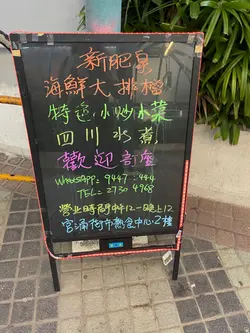 新肥泉
海鮮大排檔
特色小炒小菜
四川水煮
歡迎訂座
WhatsAPP: 9447
TEL: 2730 4968
營業時間中午12-晚上12
官涌街市熟食中心2樓